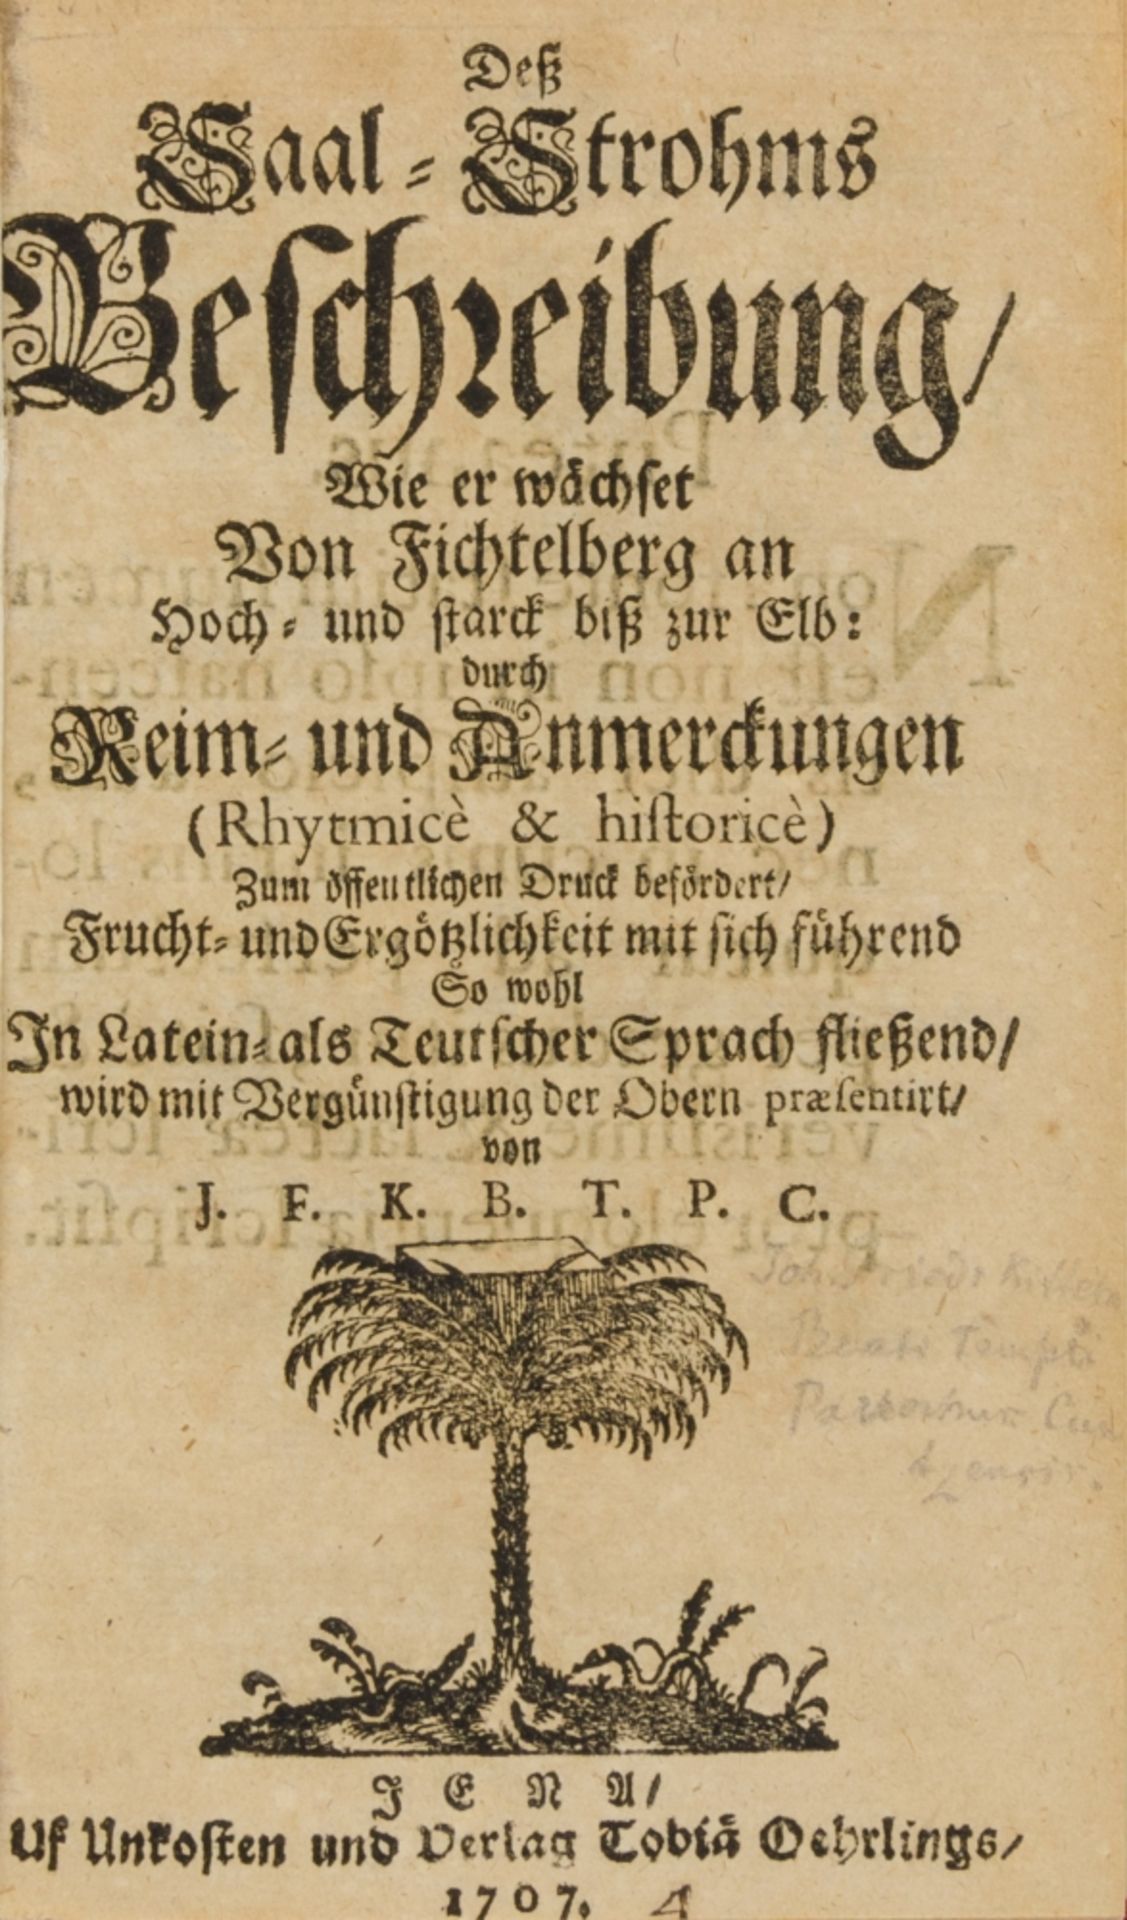 Deß
Saal-Strohms
Beschreibung/
Wie er wächset
Von Fichtelberg an
Hoch- und starck biß zur Elb:
durch
Reim- und Anmerckungen
(Rhytmicè & historicè)
Zum öffentlichen Druck befördert/
Frucht- und Ergötzlichkeit mit sich führend
So wohl
In Latein- als Teutscher Sprach fließend/
wird mit Vergünstigung der Obern præsentirt/
von
J. F. K. B. T. P. C.
Joh.
Beati Templi
JENA/
Uf Unkosten und Verlag Tobiä Oehrlings/
1707.